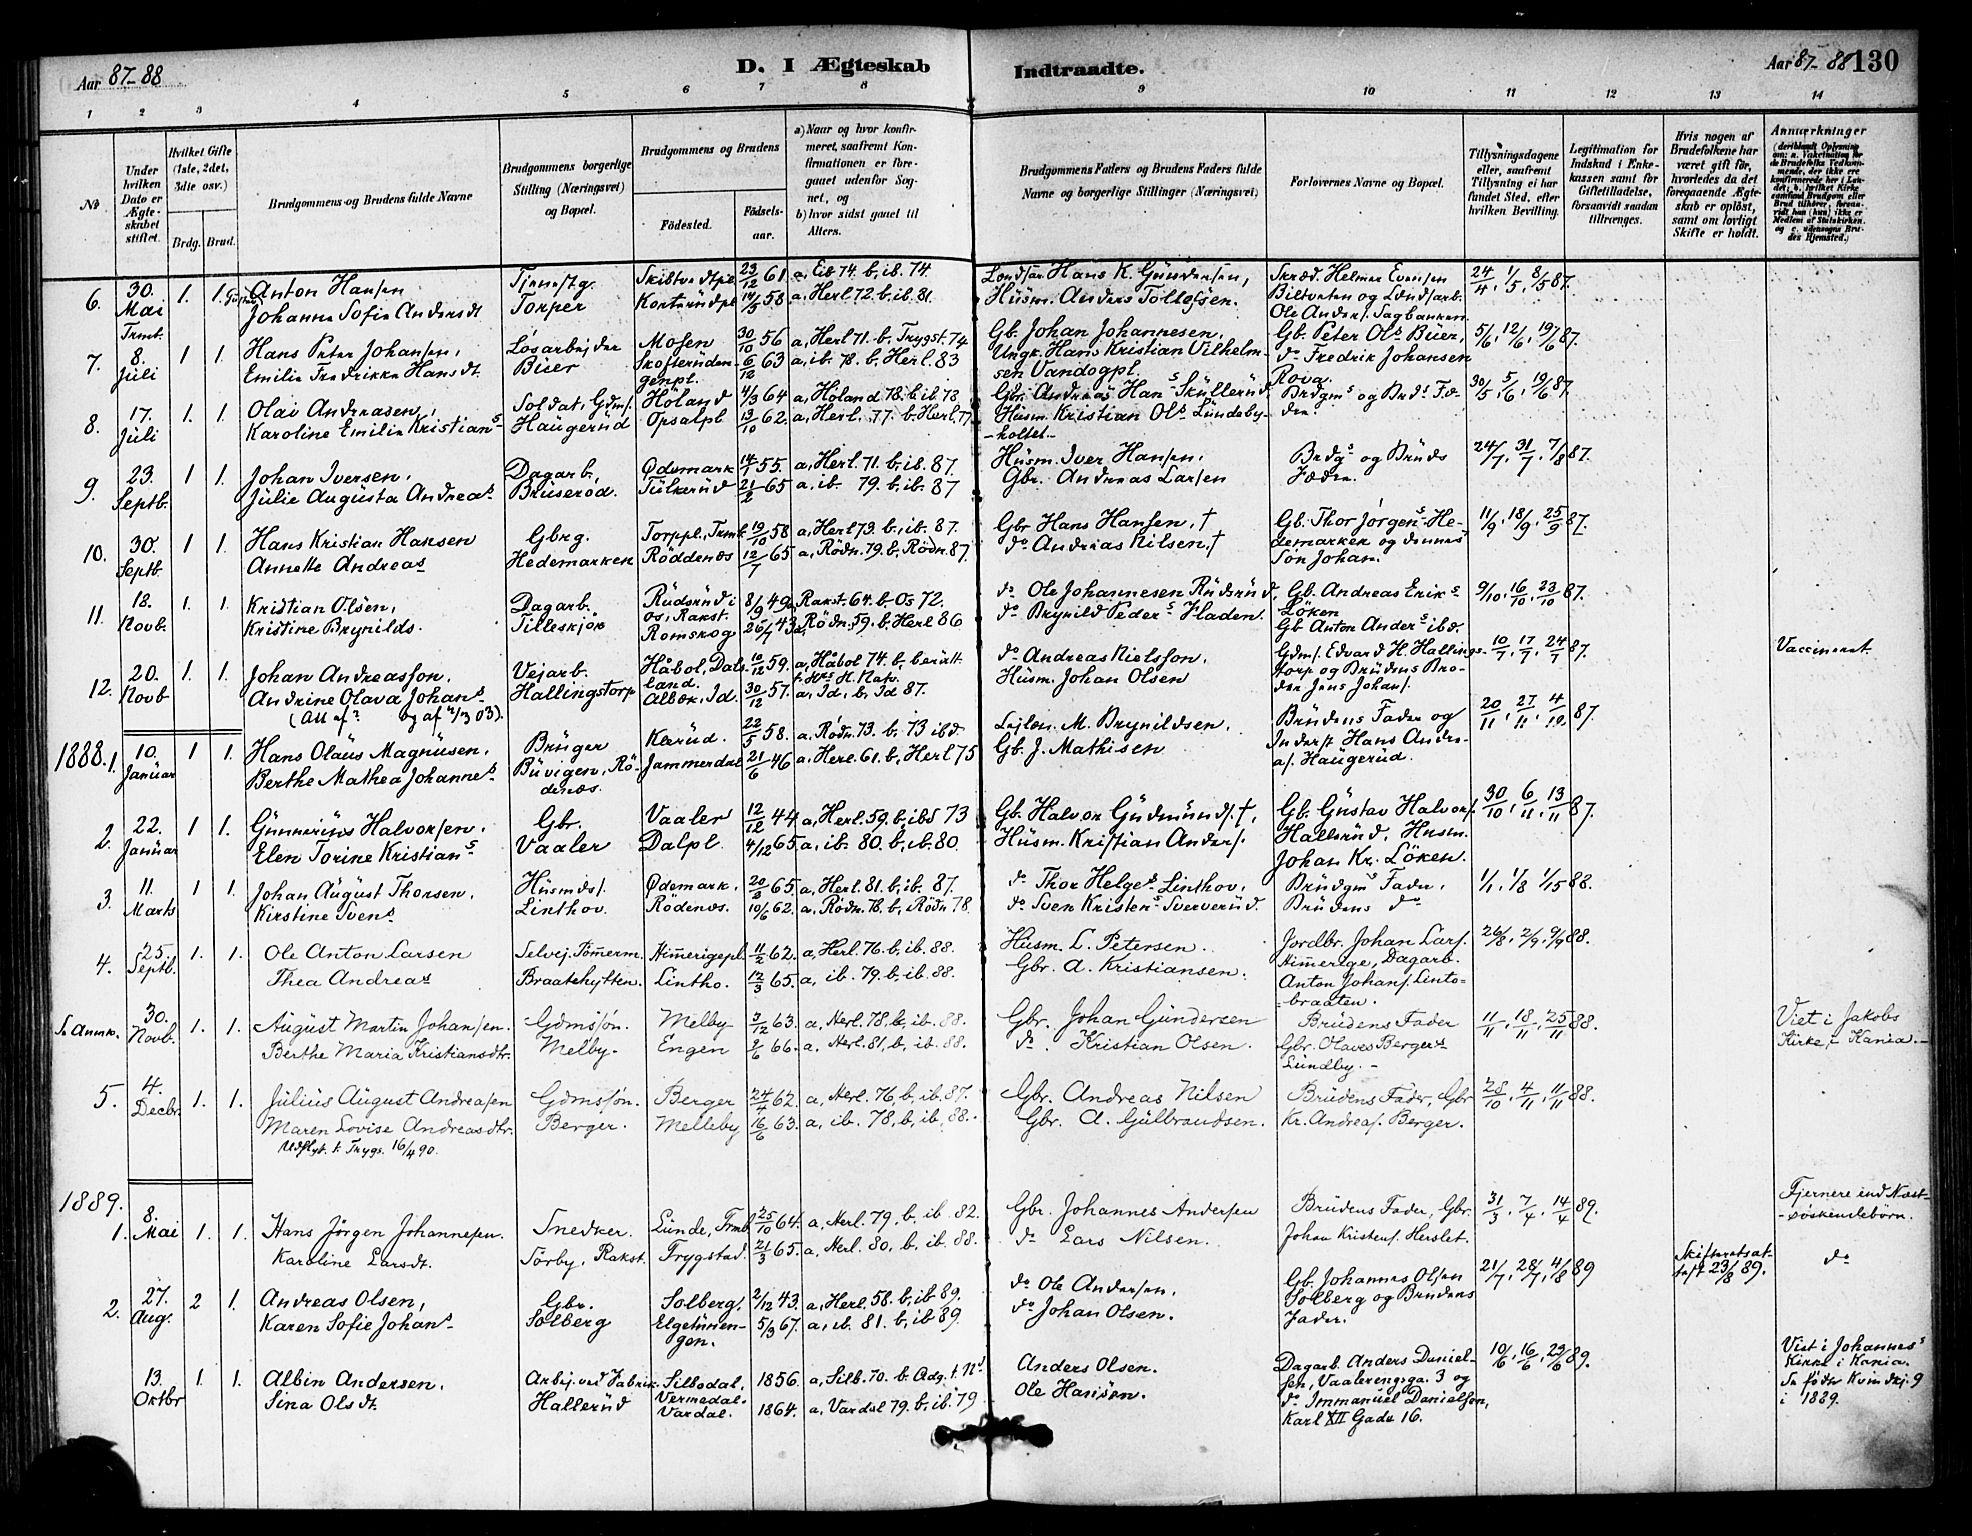 Aar 87-88
D. I Ægteskab
Indtraadte.
Aar 87-88 130
1 2 3 4 5 6 7 8 9 10 11 12 13 14
No
Under hvilken Dato er Ægteskabet stiftet.
Hvilket Gifte (1ste, 2det, 3die osv.)
Brdg. Brud.
Brudgommens og Brudens fulde Navne
Brudgommens borgerlige Stilling (Næringsvei) og Bopæl.
Brudgommens og Brudens
Fødested.
Fødsels-aar.
a) Naar og hvor konfirmeret, saafremt Konfirmationen er foregaaet udenfor Sognet, og
b) hvor sidst gaaet til Alters.
Brudgommens Faders og Brudens Faders fulde Navne og borgerlige Stillinger (Næringsvei)
Forlovernes Navne og Bopæl.
Tillysningsdagene eller, saafremt Tillysning ei har fundet Sted, efter hvilken Bevilling.
Legitimation for Indskud i Enkekassen samt for Giftetilladelse, forsaavidt saadan tiltrænges.
Hvis nogen af Brudefolkene har været gift før, hvorledes da det foregaaende Ægteskab er opløst, samt om lovligt Skifte er holdt.
Anmærkninger
6. 30. Mai 1. 1. Anton Hansen Tjenestg. 23/12 61. 74. b, ib. 74. Hans K. Gundersen, Skræd. Helmer Evensen 24/4, 1/5, 8/5 87.
Johanne Sofie Andersdt Torper 14/3 58 a, Herl 72. b, ib. 81. Husm. Anders Tollofsen. og
Ole Anders. Sagbanken.
7. 8. Juli 1 1. Hans Peter Johansen, Løsarbejder Mosen 30/10 56 a, Herl 71. b. Trygst. 74 Gb. Johan Johannesen, Gb. Peter Ols Buer, 5/6, 12/6, 19/6 87.
Emilie Fredrikke Hansdt. Buer 6/12 63 a, ib. 78. b. Herl. 83 Ungk. Hans Kristian Vilhelm- do Fredrik Johansen
genpl. sen Vandogpl. Rova.
8. 17. Juli 1. 1. Olai Andreasen, Soldat, Gdms. Höland 4/3 64 a, Höland 78. b. ib. 78 Gbr. Andreas Hans Skullerud Brdgms og Brds Fæ- 30/5, 5/6, 19/6 87.
Karoline Emilie Kristians Haugerud Opsalpl 13/10 62. a, Herl. 77. b. Herl. 77 Husm. Kristian Ols Lundeby- dre.
-holtet.
9. 23. Septb. 1 1. Johan Iversen, Dagarb, Ødemark 14/1 55. a, Herl. 71. b, ib. 87. Husm. Iver Hansen, Brdgs og Bruds 24/7, 31/7, 7/8 87.
Julie Augusta Andreas. Bruserød. 21/2 65 a. ib. 79. b, ib. 87 Gbr. Andreas Larsen Fædre.
10. 30. Septb. 1 1. Hans Kristian Hansen Gbrg. Torppl., Trmb. 19/10 58 a, Herl 73. b, ib. 87. Gbr Hans Hansen, † Gb. Thor Jørgens- He- 11/9, 18/9, 25/9 87.
Annette Andreas Hedemarken Röddenæs 12/7 65 a, Rödn. 79. b, Rödn. 87. do Andreas Nilsen. † demarken og dennes
Søn Johan.
11. 18. Novb. 1. 1. Kristian Olsen, Dagarb. Rudsrud i 8/9 49 Rakst. 64. b. Os 72. do Ole Johannesen Rudsrud, Gb. Andreas Eriks 9/10, 16/10, 23/10 87.
Kristine Brynilds. Tilleskjør Os, Rakst. a. Rödn. 59. b, Herl 86 do Brynild Peders Fladen. Löken
Romskog 26/7 43 Gb Anton Anders ibd.
12. 20. Novb 1. 1. Johan Andreassen, Vejarb. Håbol, Dals- 10/12 59. a, Håbol 74. b, do Andreas Nielsson, Gdms. Edvard H. Hallings- 10/7, 17/7, 24/7 87. Vaccineret.
Andrine Olava Johans Hallingstorp land. Husm. Johan Olsen torp og Brudens Bro-
Albæk, Id. 30/12 57. a, Id, b, Id 87. der Jens Johans.
1888. 1. 10. Januar 1 1. Hans Olaus Magnusen, Bruger Karud. 22/5 58. a. Rødn. 73. b. 73 ibd. M. Brynildsen, Brudens Fader og 20/11, 27/11, 4/12 87
Berthe Mathea Johannes Buvigen, Rö- Jammerdal 21/6 46 a, Herl. 61. b, Herl 75 Gb. J. Mathisen Inderst Hans Andre-
denæs. as. Haugerud.
2. 22. Januar 1 1. Gunnerius Halvorsen, Gbr. Vaaler 12/12 44 a, Herl. 59. b, ibd 73 Gb. Halvor Gudmunds. †, Gb. Gustav Halvors. 30/10, 6/11, 13/11 87.
Elen Torine Kristians Vaaler Dalpl. 4/12 65 a, ib. 80. b, ib. 80. Husm. Kristian Anders. Hallerud, Husm.
Johan Kr. Löken.
3. 11. Marts 1 1. Johan August Thorsen, Husmds. Ødemark, 20/2 65. a, Herl. 81. b, ib. 87. do Thor Helges Linthov, Brudgms Fader, 1/1, 1/8 1/15 88.
Kirstine Svens Linthov. Rödenæs. 10/6 62. a. Rødn. 78. b, iRødn 78. do Sven Kristens Sververud. Brudens do
4. 25. Septb. 1. 1. Ole Anton Larsen Selvej. Tömerm. Himerigepl. 11/2 62. a, Herl. 76. b, ib. 88. Husm. L. Petersen. Jordbr. Johan Lars. 26/8, 2/9, 9/9 88.
Thea Andreas Braatehytten. Lintho. 12/3 65. a, ib. 79. b, ib. 88. Gbr. A. Kristiansen. Himerige, Dagarb.
Anton Johans. Linto-
=braaten.
Se Anmk. 30. Novb. 1. 1. August Martin Johansen. Gdmssøn. Melby 3/12 63. a, Herl. 78, b, ib. 88. Gbr. Johan Gundersen Brudens Fader 11/11, 18/11, 25/11 88. Viet i Jakobs
Berthe Maria Kristiansdtr. Melby. Engen 2/6 66. a. Herl. 81, b, ib. 88. do. Kristian Olsen. Gbr. Olaves Bergers Kirke, i Kania.
Lundby.
5. 4. Decbr. 1. 1. Julius August Andreasen Gdmssøn. Berger 24/4 62. a, Herl. 76, b, ib. 87. Gbr. Andreas Nilsen Brudens Fader, Gbr 28/10, 4/11, 11/11 88.
Maren Lovise Andreasdtr. Berger. Melleby 16/6 63. a, ib. 78, b, ib, 88. Gbr. A. Gulbrandsen. Kr. Andreas. Berger.
Udflyt. t. Trygs. 16/4 90.
1889.
1. 8. Mai 1. 1. Hans Jörgen Johannesen. Snedker. Lunde, Trmb. 25/10 64. a, Herl. 79, b, ib. 82. Gbr. Johannes Andersen Brudens Fader, Gbr. 31/3, 7/4, 14/4 89. Fjernere end Næst-
Karoline Larsdt. Sörby, Rakst. Trygstad. 21/3 65. a, Herl. 80, b, ib. 88. do Lars Nilsen. Johan Kristens. Herslet. -söskendebörn.
2. 27. Aug. 2 1. Andreas Olsen, Gbr. Solberg, 2/12 43. a, Herl. 58. b, ib 89. do Ole Andersen, Gb. Johannes Olsen 21/7, 28/7, 4/8 89 Skifteretsat-test 23/8 89. do
Karen Sofie Johans Solberg 5/3 67. a, ib. 81. b, ib 89. do Johan Olsen. Solberg og Brudens
gen. Fader.
13. Octbr 1. 1. Albin Andersen, Arbej. ved Fabrik. Silbodal, 1856. a, Silb. 70. b. Anders Olsen. Dagarb. Anders Daniel- 10/6, 16/6, 23/6 89. Viet i Johannes
Sina Olsdt. Hallerud Vermedal. Ole Hansen. sen, Vaalerengsga. 3 og Kirke i Kania.
Vardal. 1864. a, Vardal 79. b, ib. 79 do Immanuel Danielsen, Se föder Kvindkj. 9
Karl XII Gade 16. i 1889.